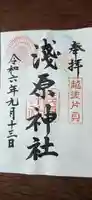 奉拝
越後片貝
淺原神社
令和六年九月十三日